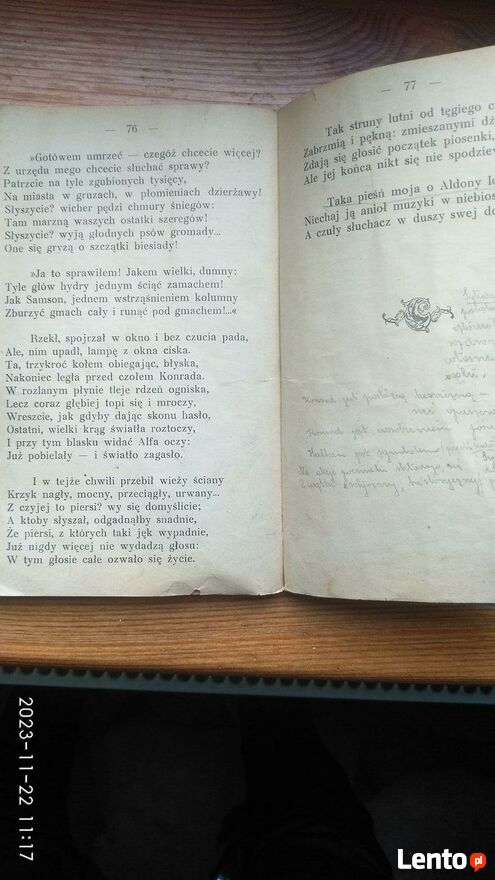 — 76 —
»Gotówem umrzeć — czegóż chcecie więcej?
Z urzędu mego chcecie słuchać sprawy?
Patrzcie na tyle zgubionych tysięcy,
Na miasta w gruzach, w płomieniach dzierżawy!
Słyszycie? wicher pędzi chmury śniegów:
Tam marzną waszych ostatki szeregów!
Słyszycie? wyją głodnych psów gromady...
One się gryzą o szczątki biesiady!
»Ja to sprawiłem! Jakem wielki, dumny:
Tyle głów hydry jednym ściąć zamachem!
Jak Samson, jednem wstrząśnieniem kolumny
Zburzyć gmach cały i runąć pod gmachem!...«
Rzekł, spojrzał w okno i bez czucia pada,
Ale, nim upadł, lampę z okna ciska.
Ta, trzykroć kołem obiegając, błyska,
Nakoniec legła przed czołem Konrada.
W rozlanym płynie tleje rdzeń ogniska,
Lecz coraz głębiej topi się i mroczy,
Wreszcie, jak gdyby dając skonu hasło,
Ostatni, wielki krąg światła roztoczy,
I przy tym blasku widać Alfa oczy:
Już pobielały — i światło zagasło.
I w tejże chwili przebił wieży ściany
Krzyk nagły, mocny, przeciągły, urwany...
Z czyjej to piersi? wy się domyślicie;
A ktoby słyszał, odgadnąłby snadnie,
Że piersi, z których taki jęk wypadnie,
Już nigdy więcej nie wydadzą głosu:
W tym głosie całe ozwało się życie.
— 77 —
Tak struny lutni od tęgiego c
Zabrzmią i pękną: zmieszanymi dź
Zdają się głosić początek piosenki,
Ale jej końca nikt się nie spodziew
Taka pieśń moja o Aldony lo
Niechaj ją anioł muzyki w niebios
A czuły słuchacz w duszy swej do
Konrad jest postacią
nie
Konrad jest
Halban jest symbolem
2023-11-22 11:17
Lento.pl